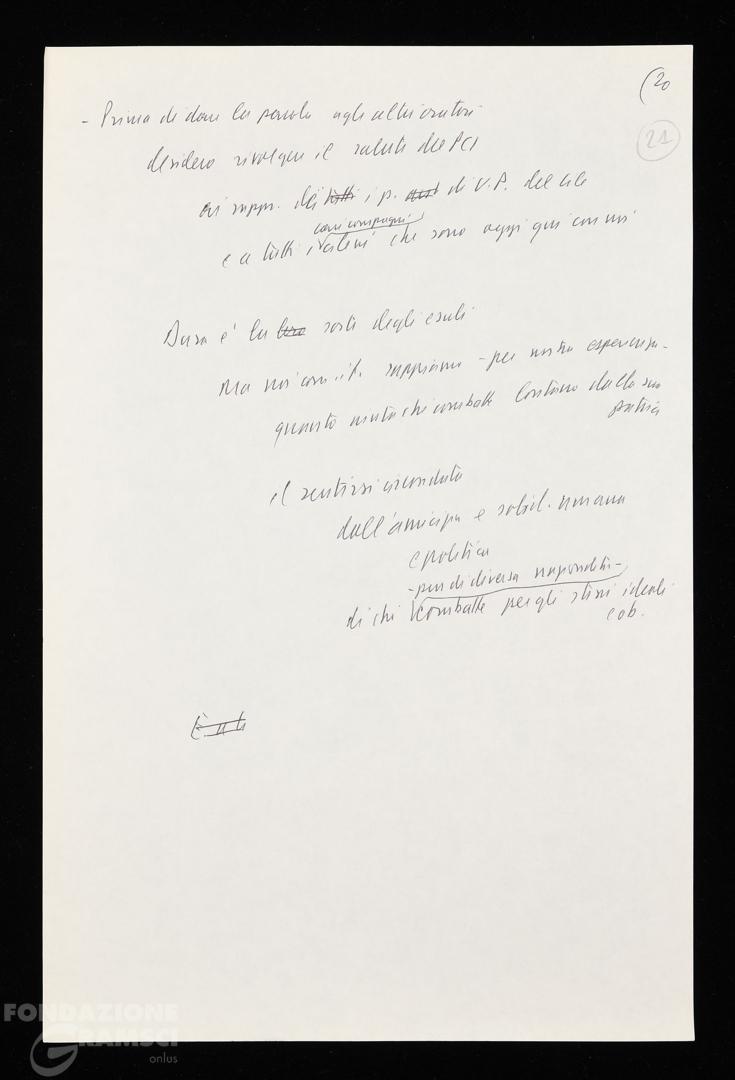 (20
21
- Prima di dare la parola agli altri oratori
desidero rivolgere il saluto del PCI
ai rappr. dei tutti i p. di U.P. del Cile
cari compagni
e a tutti i cileni che sono oggi qui con noi
Dura è la loro sorte degli esuli
Ma noi com.ti. sappiamo - per nostra esperienza -
quanto aiuta chi combatte lontano dalla sua
patria
il sentirsi circondato
dall'amicizia e solid. umana
e politica
- pur di diversa
di chi combatte per gli stessi ideali
e ob.
FONDAZIONE
GRAMSCI
onlus